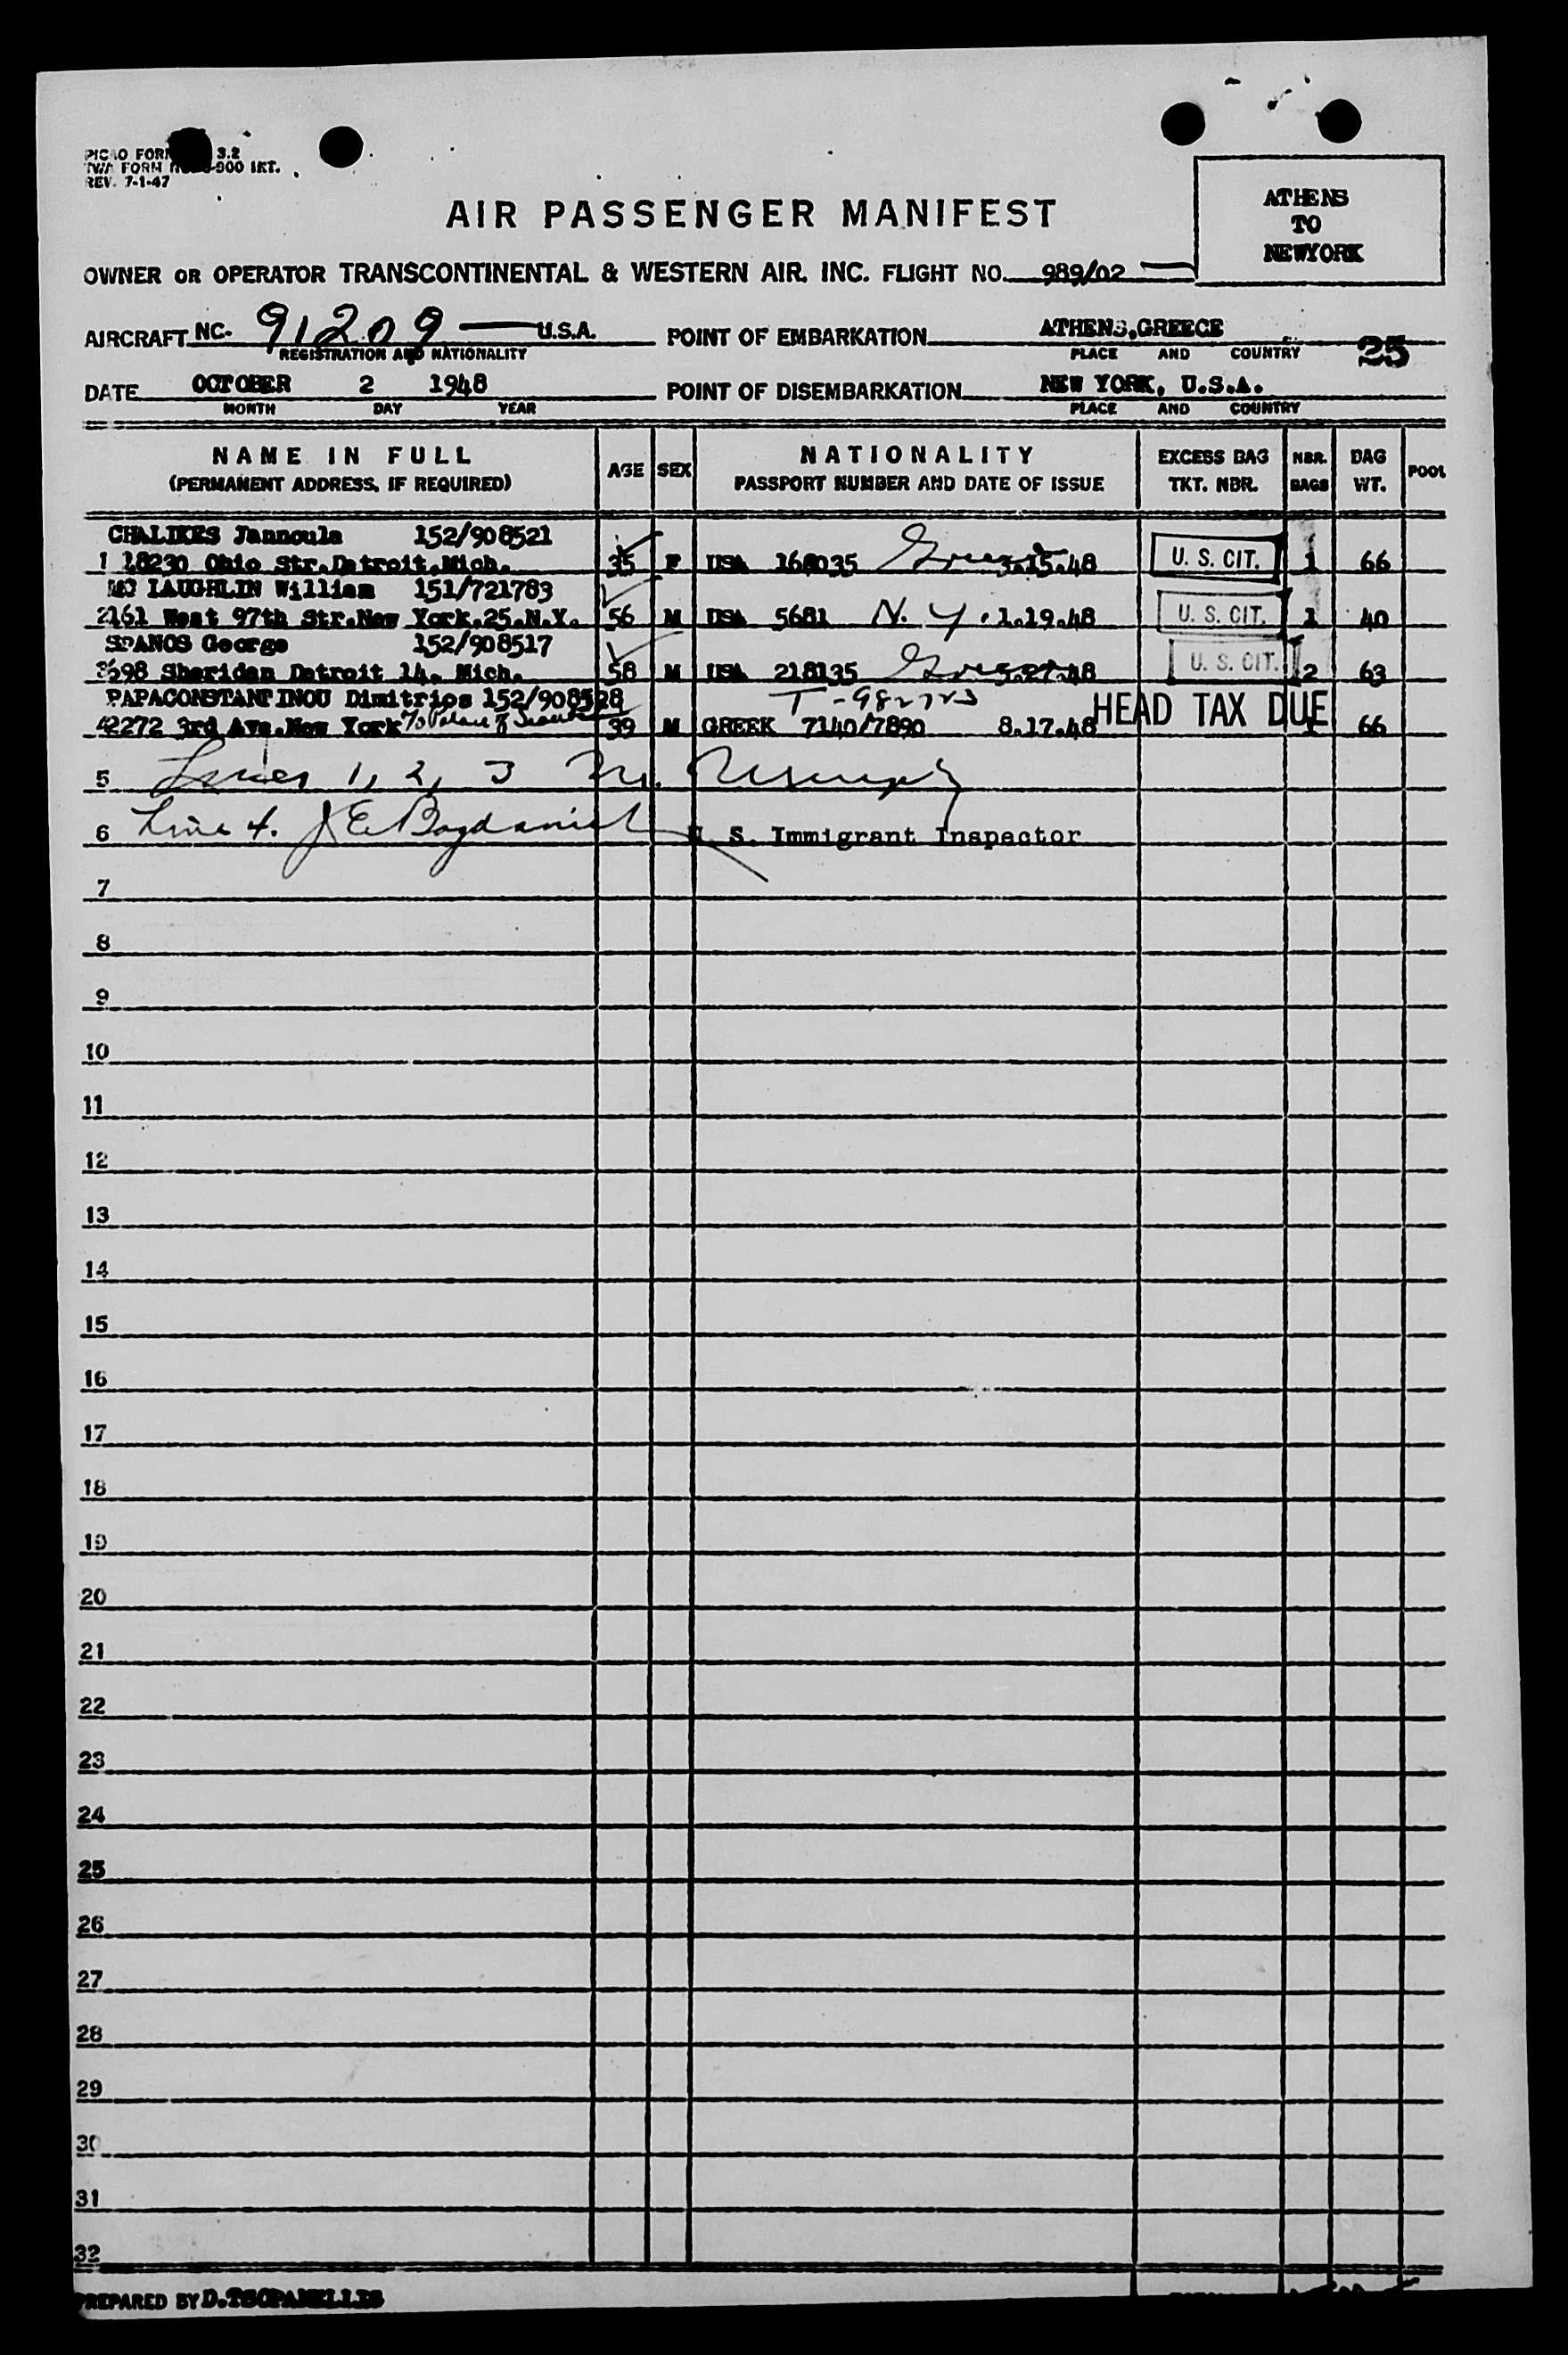 PICAO FORM 3.2
TWA FORM -900 INT.
REV. 7-1-47
ATHENS
TO
NEWYORK
AIR PASSENGER MANIFEST
OWNER OR OPERATOR TRANSCONTINENTAL & WESTERN AIR, INC. FLIGHT NO. 989/02
AIRCRAFT NC- 91209 U.S.A. POINT OF EMBARKATION ATHENS,GREECE
REGISTRATION AND NATIONALITY PLACE AND COUNTRY 25
DATE OCTOBER 2 1948 POINT OF DISEMBARKATION NEW YORK, U.S.A.
MONTH DAY YEAR PLACE AND COUNTRY
NAME IN FULL AGE SEX NATIONALITY EXCESS BAG NBR. BAG POOL
(PERMANENT ADDRESS, IF REQUIRED) PASSPORT NUMBER AND DATE OF ISSUE TKT. NBR. BAGS WT.
CHALIKES Jannoula 152/908521
1 18230 Ohio Str.Detroit.Mich. 35 F USA 168035 3.15.48 U. S. CIT. 1 66
MC LAUGHLIN William 151/721783
2161 West 97th Str.New York.25.N.Y. 56 M USA 5681 N.Y. 1.19.48 U. S. CIT. 1 40
SPANOS George 152/908517
3698 Sheridan Detroit 14. Mich. 58 M USA 218135 5.27.48 U. S. CIT. 2 63
PAPACONSTANTINOU Dimitrios 152/908528 HEAD TAX DUE
42272 3rd Ave.New York 39 M GREEK 7140/7890 8.17.48 1 66
5 Lines 1, 2, 3
6 Line 4. U. S. Immigrant Inspector
7
8
9
10
11
12
13
14
15
16
17
18
19
20
21
22
23
24
25
26
27
28
29
30
31
32
PREPARED BY D.TSOPANELLIS